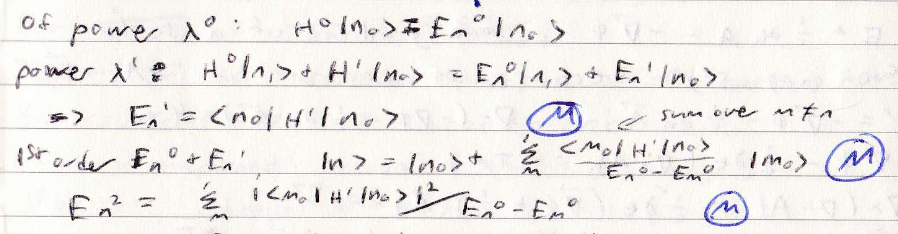 of power λ⁰ : H⁰|n₀> = Eₙ⁰|n₀>
power λ' : H⁰|n₁> + H'|n₀> = Eₙ⁰|n₁> + Eₙ'|n₀>
=> Eₙ' = <n₀|H'|n₀> M ↙ sum over m≠n
1st order Eₙ⁰ + Eₙ' |n> = |n₀> + Σ'ₘ <m₀|H'|n₀> / Eₙ⁰-Eₘ⁰ |m₀> M
Eₙ² = Σ'ₘ |<m₀|H'|n₀>|² / Eₙ⁰-Eₘ⁰ M